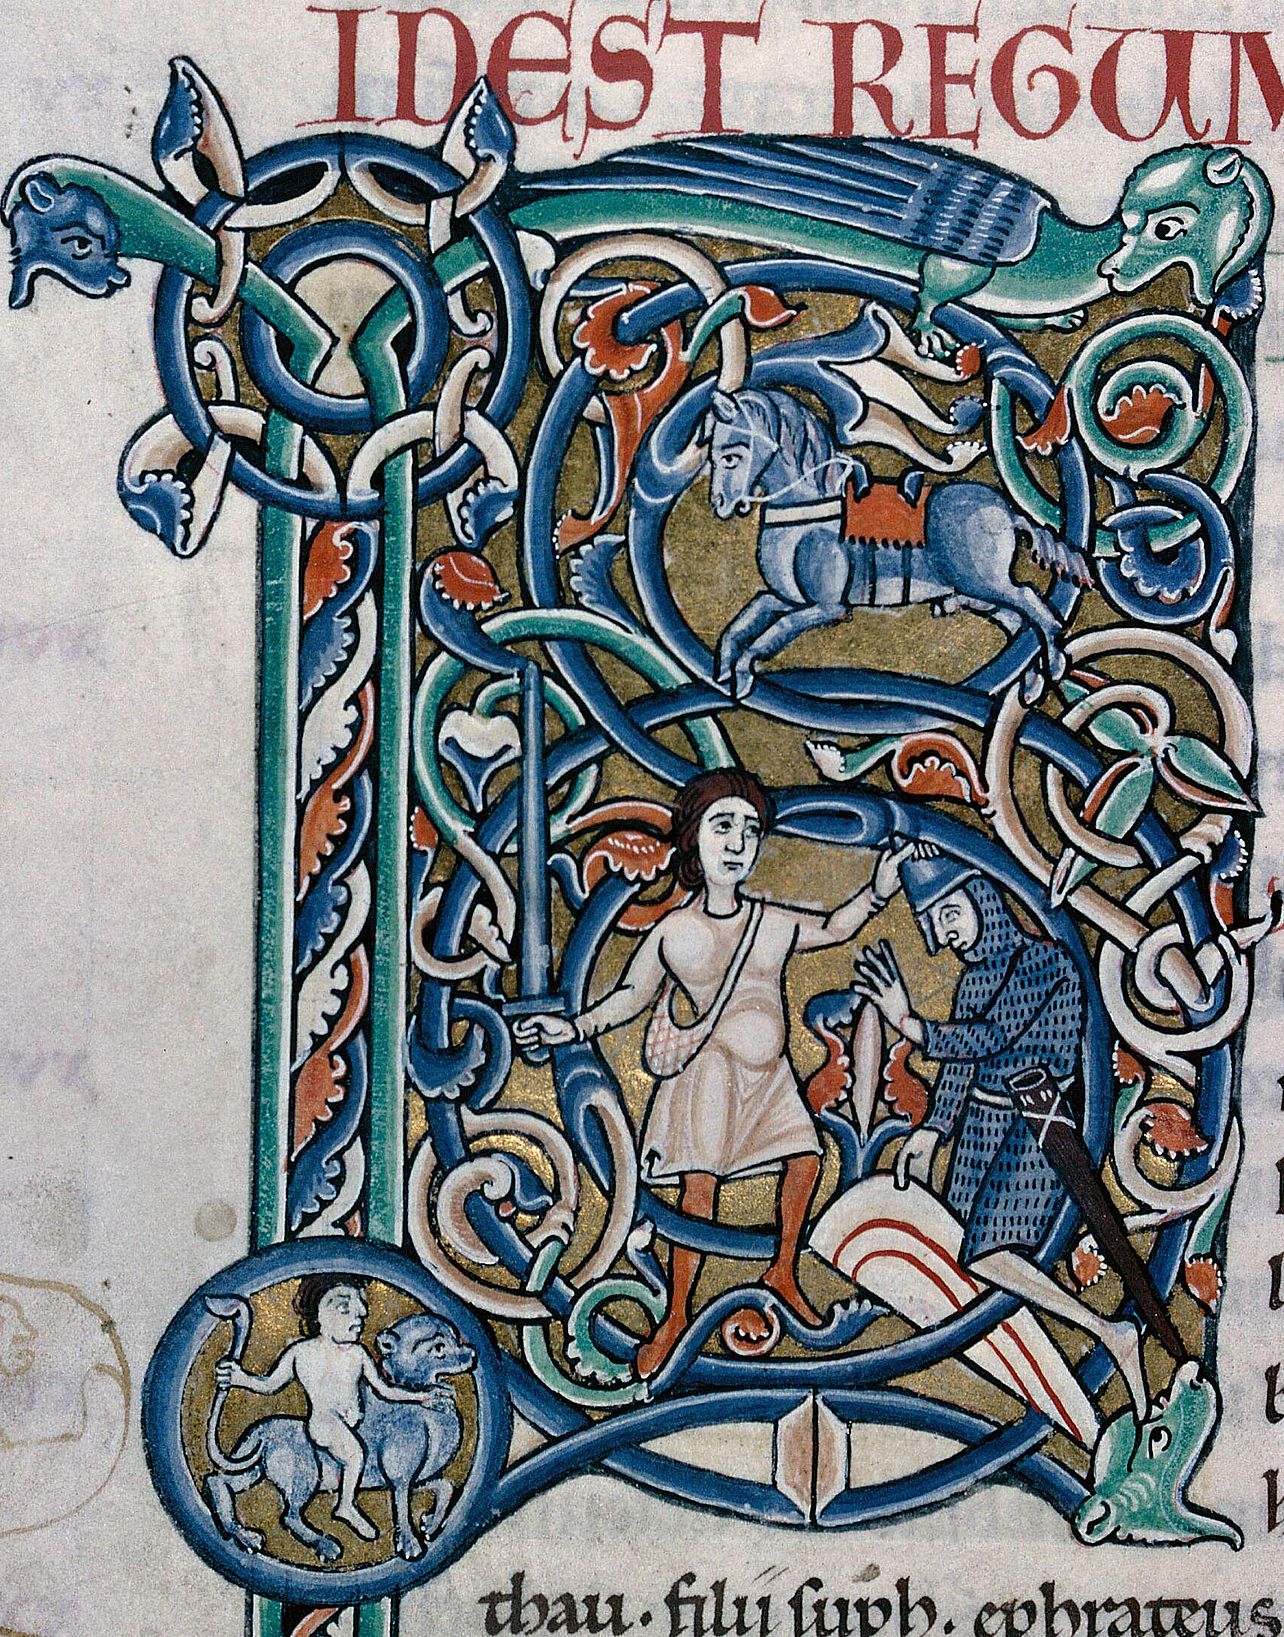 IDEST REGUM
thau. filii suph. ephrateus